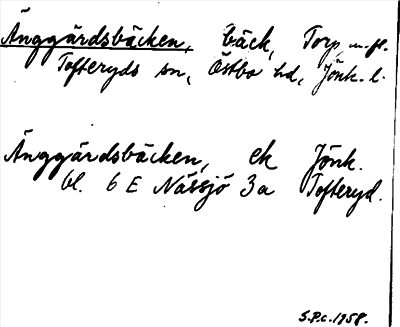 Änggärdsbäcken, bäck, Torp m.fl.
Tofteryds sn, Östbo hd, Jönk. l.
Änggärdsbäcken, ek Jönk.
bl. 6 E Nässjö 3a Tofteryd.
S.P.c. 1958.